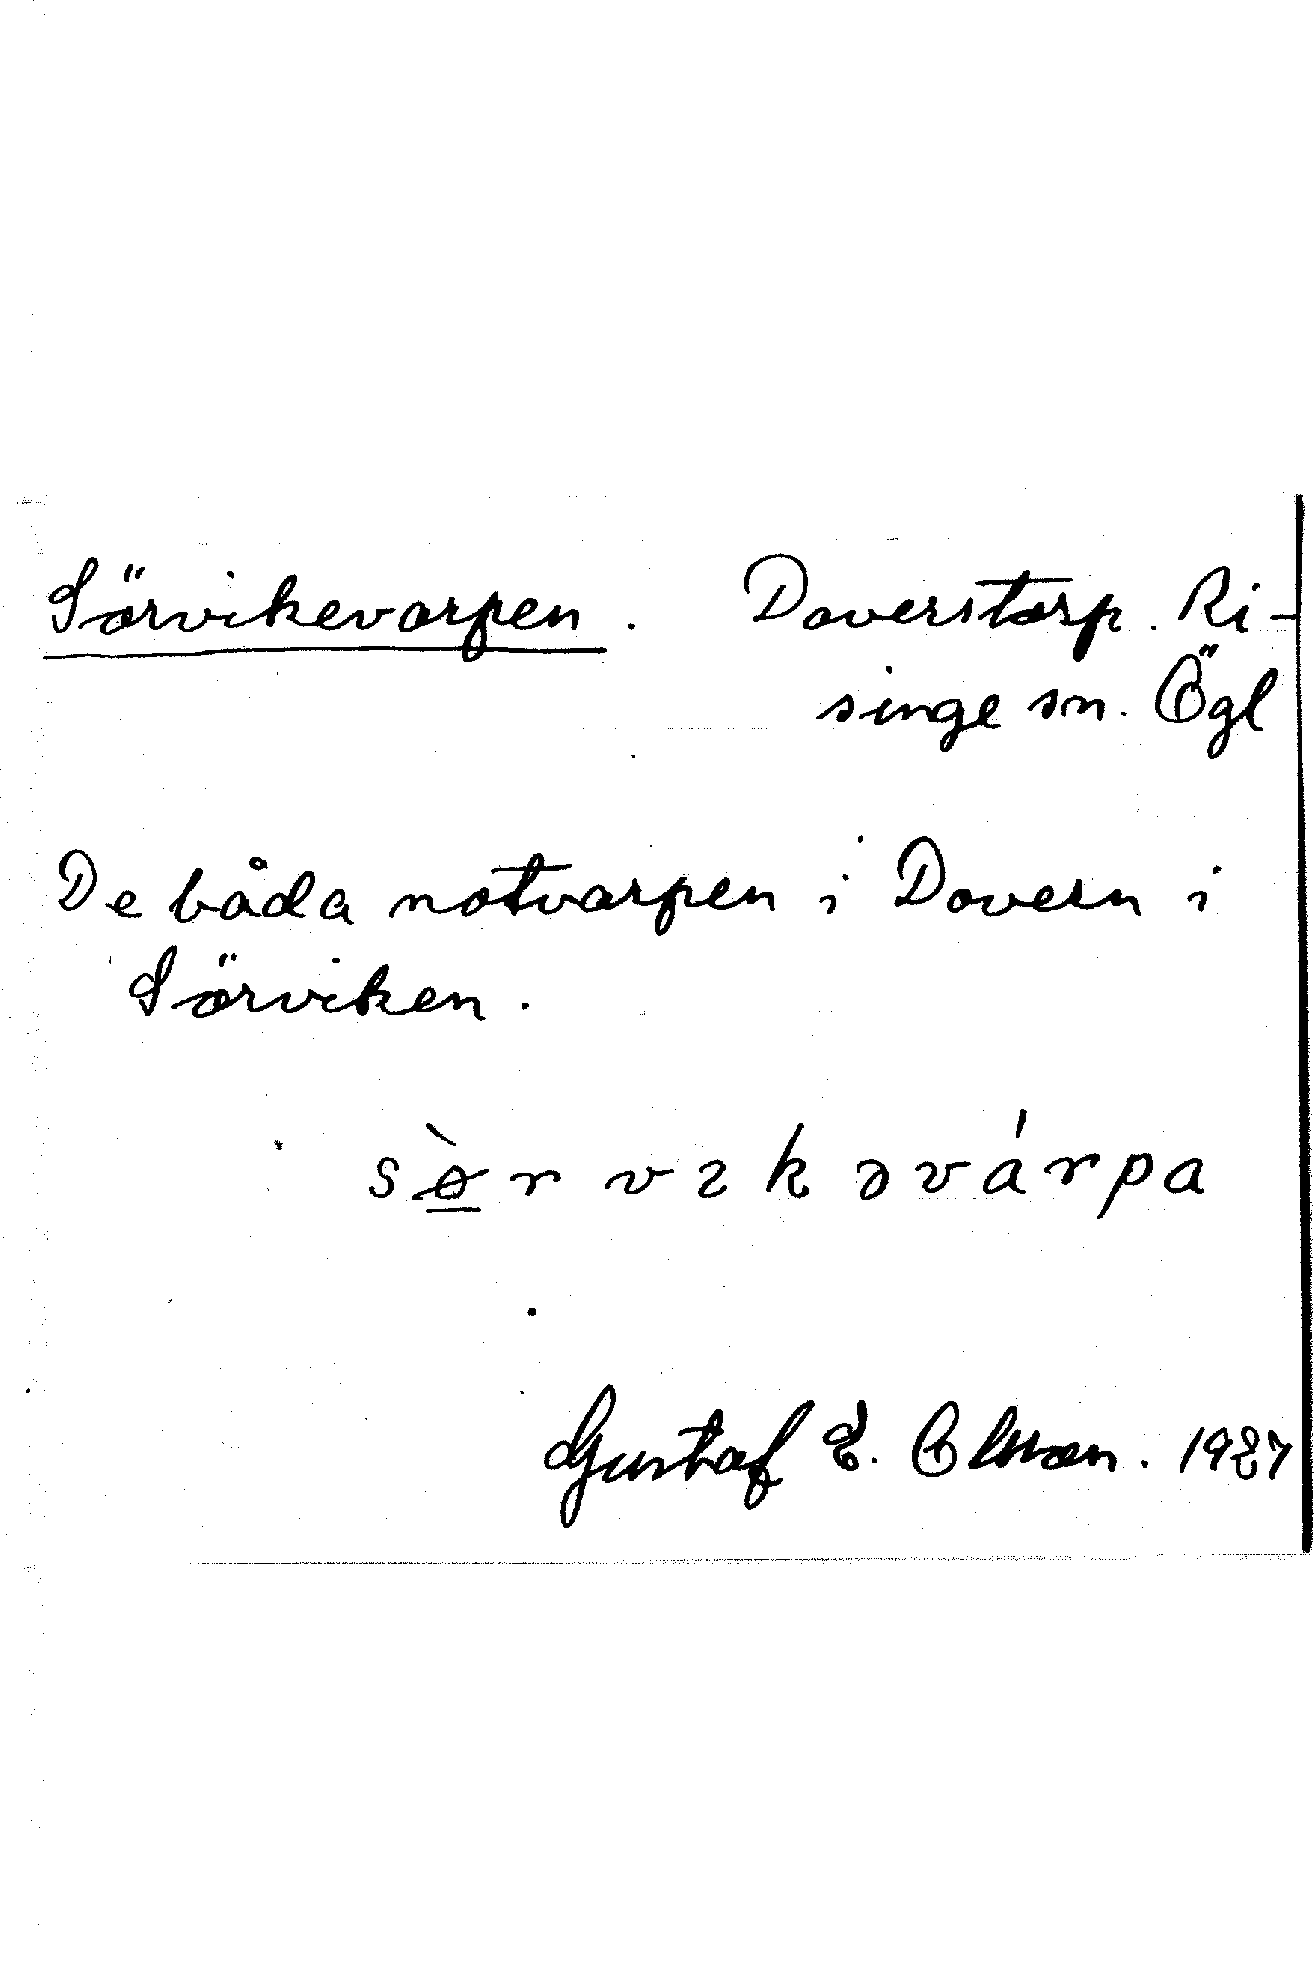 Sörvikevarpen. Doverstorp. Ri-
singe sn. Ögl
De båda notvarpen i Dovern i
Sörviken.
sø̀rvıkəvárpa
Gustaf E. Olsson. 1927